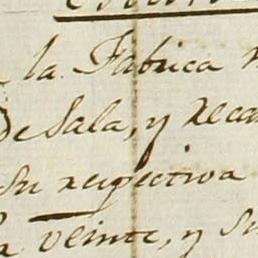 la Fabrica
de Sala, y Reca
su respectiva
veinte, y su